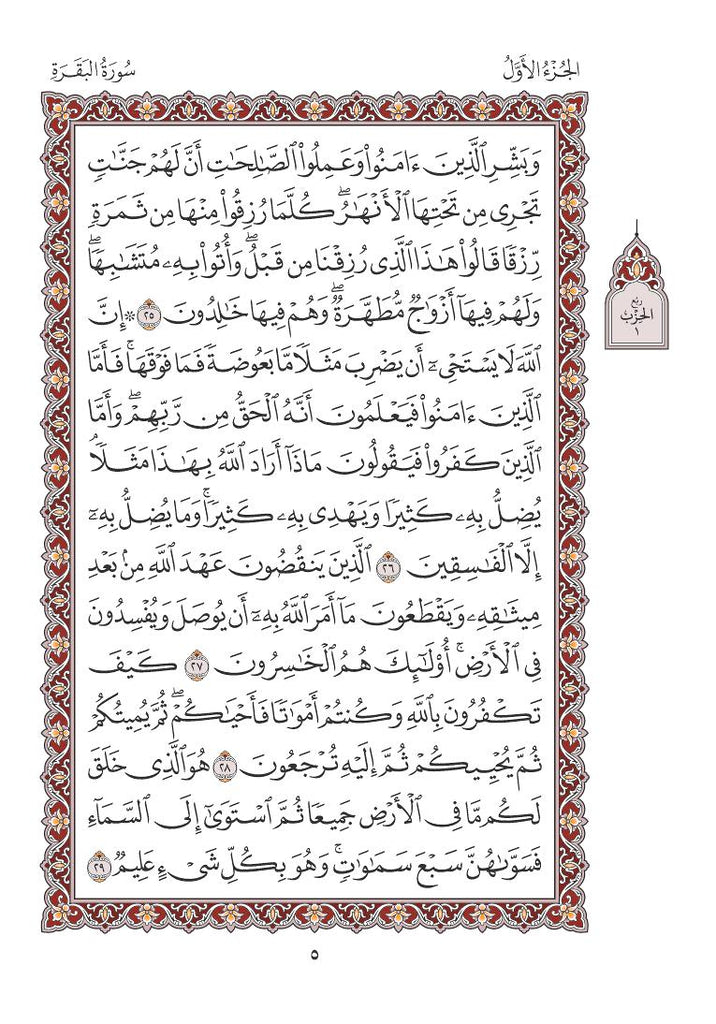 الجُزْءُ الأَوَّلُ
سُورَةُ البَقَرَةِ
وَبَشِّرِ ٱلَّذِينَ ءَامَنُوا۟ وَعَمِلُوا۟ ٱلصَّٰلِحَٰتِ أَنَّ لَهُمْ جَنَّٰتٍ
تَجْرِى مِن تَحْتِهَا ٱلْأَنْهَٰرُ ۖ كُلَّمَا رُزِقُوا۟ مِنْهَا مِن ثَمَرَةٍ
رِّزْقًا قَالُوا۟ هَٰذَا ٱلَّذِى رُزِقْنَا مِن قَبْلُ ۖ وَأُتُوا۟ بِهِۦ مُتَشَٰبِهًا ۖ
وَلَهُمْ فِيهَآ أَزْوَٰجٌ مُّطَهَّرَةٌ ۖ وَهُمْ فِيهَا خَٰلِدُونَ ٢٥ ۞ إِنَّ
ٱللَّهَ لَا يَسْتَحْىِۦٓ أَن يَضْرِبَ مَثَلًا مَّا بَعُوضَةً فَمَا فَوْقَهَا ۚ فَأَمَّا
ٱلَّذِينَ ءَامَنُوا۟ فَيَعْلَمُونَ أَنَّهُ ٱلْحَقُّ مِن رَّبِّهِمْ ۖ وَأَمَّا
ٱلَّذِينَ كَفَرُوا۟ فَيَقُولُونَ مَاذَآ أَرَادَ ٱللَّهُ بِهَٰذَا مَثَلًا ۘ
يُضِلُّ بِهِۦ كَثِيرًا وَيَهْدِى بِهِۦ كَثِيرًا ۚ وَمَا يُضِلُّ بِهِۦٓ
إِلَّا ٱلْفَٰسِقِينَ ٢٦ ٱلَّذِينَ يَنقُضُونَ عَهْدَ ٱللَّهِ مِنۢ بَعْدِ
مِيثَٰقِهِۦ وَيَقْطَعُونَ مَآ أَمَرَ ٱللَّهُ بِهِۦٓ أَن يُوصَلَ وَيُفْسِدُونَ
فِى ٱلْأَرْضِ ۚ أُو۟لَٰٓئِكَ هُمُ ٱلْخَٰسِرُونَ ٢٧ كَيْفَ
تَكْفُرُونَ بِٱللَّهِ وَكُنتُمْ أَمْوَٰتًا فَأَحْيَٰكُمْ ۖ ثُمَّ يُمِيتُكُمْ
ثُمَّ يُحْيِيكُمْ ثُمَّ إِلَيْهِ تُرْجَعُونَ ٢٨ هُوَ ٱلَّذِى خَلَقَ
لَكُم مَّا فِى ٱلْأَرْضِ جَمِيعًا ثُمَّ ٱسْتَوَىٰٓ إِلَى ٱلسَّمَآءِ
فَسَوَّىٰهُنَّ سَبْعَ سَمَٰوَٰتٍ ۚ وَهُوَ بِكُلِّ شَىْءٍ عَلِيمٌ ٢٩
ربع
الحِزْب
١
٥